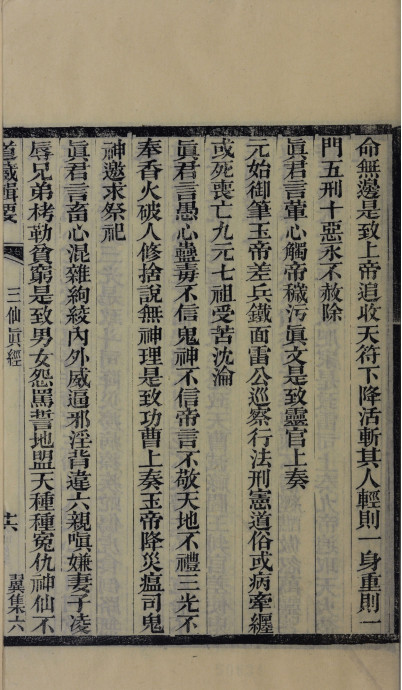 命無邊是致上帝追收天符下降活斬其人輕則一身重則一
門五刑十惡永不赦除
眞君言葷心觸帝穢污眞文是致靈官上奏
元始御筆玉帝差兵鐵面雷公巡察行法刑憲道俗或病牽纏
或死喪亡九元七祖受苦沈淪
眞君言愚心蠱毒不信鬼神不信帝言不敬天地不禮三光不
奉香火破人修捨說無神理是致功曹上奏玉帝降災瘟司鬼
神邀求祭祀
眞君言畜心混雜絢綾內外威逼邪淫背違六親嗔嫌妻子凌
辱兄弟栲勒貧窮是致男女怨罵誓地盟天種種寃仇神仙不
道藏輯要
三仙眞經
翼集六